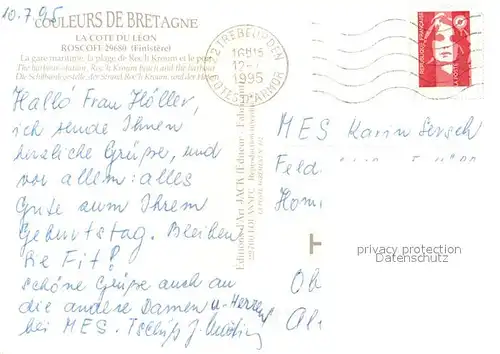 10.7.95
COULEURS DE BRETAGNE
LA COTE DU LEON
ROSCOFF 29680 (Finistère)
La gare maritime, la plage de Roc'h Kroum et le port
The harbour-station, Roc'h Kroum beach and the harbour
Die Schiffsanlegestelle, der Strand Roc'h Kroum und der Hafen
22 TREBEURDEN
16H15
12-7
1995
COTES D'ARMOR
REPUBLIQUE FRANÇAISE
LA POSTE
Hallo Frau Höller,
ich sende Ihnen
herzliche Grüße, und
vor allem: alles
Gute zum Ihrem
Geburtstag. Bleiben
Sie Fit!
schöne Grüße auch an
die andere Damen u. Herren
bei MES. Tschüß J.
Editions d'Art JACK
MES Karin
Feld
Hom
privacy protection
Datenschutz